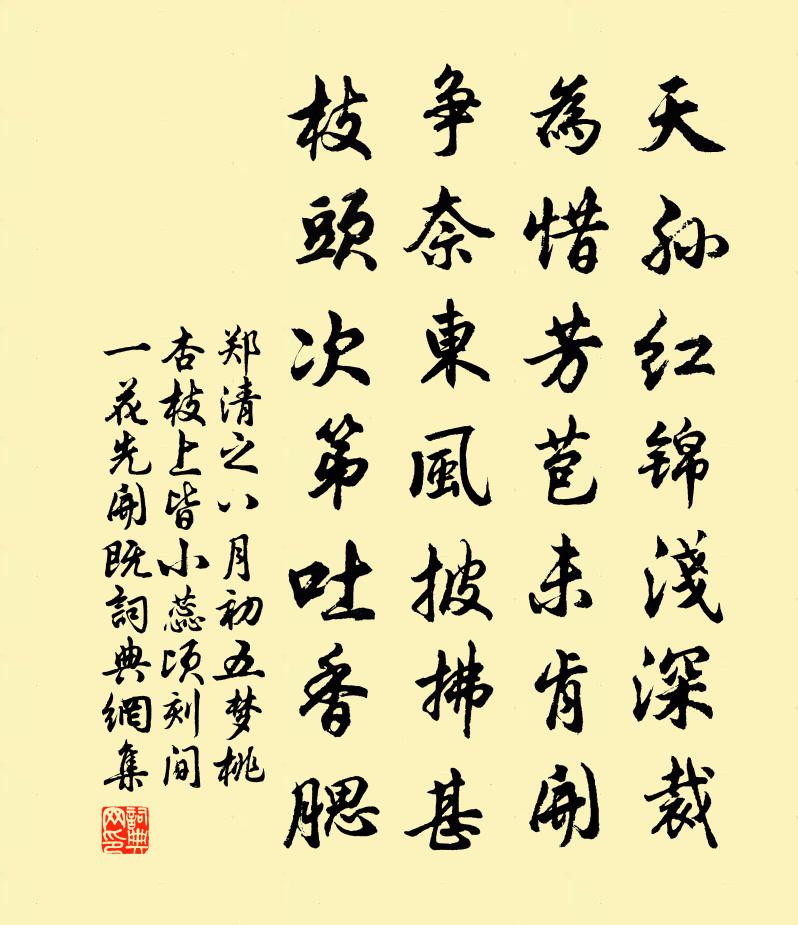 天孙红锦淺深裁
為惜芳苞未肯開
争奈東風披拂甚
枝頭次第吐香腮
郑清之八月初五梦桃
杏枝上皆小蕊顷刻间
一花先開既詞典網集
詞典网印